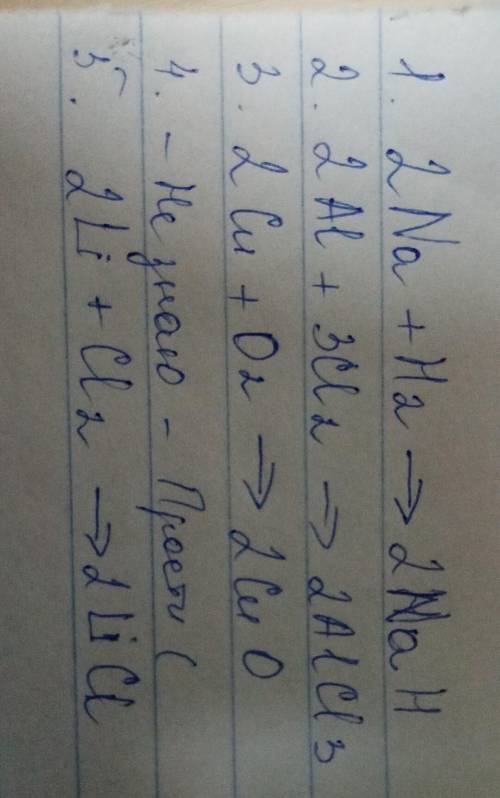 1. 2Na + H2 → 2NaH
2. 2Al + 3Cl2 → 2AlCl3
3. 2Cu + O2 → 2CuO
4. - Не знаю - Прости (
5. 2Li + Cl2 → 2LiCl